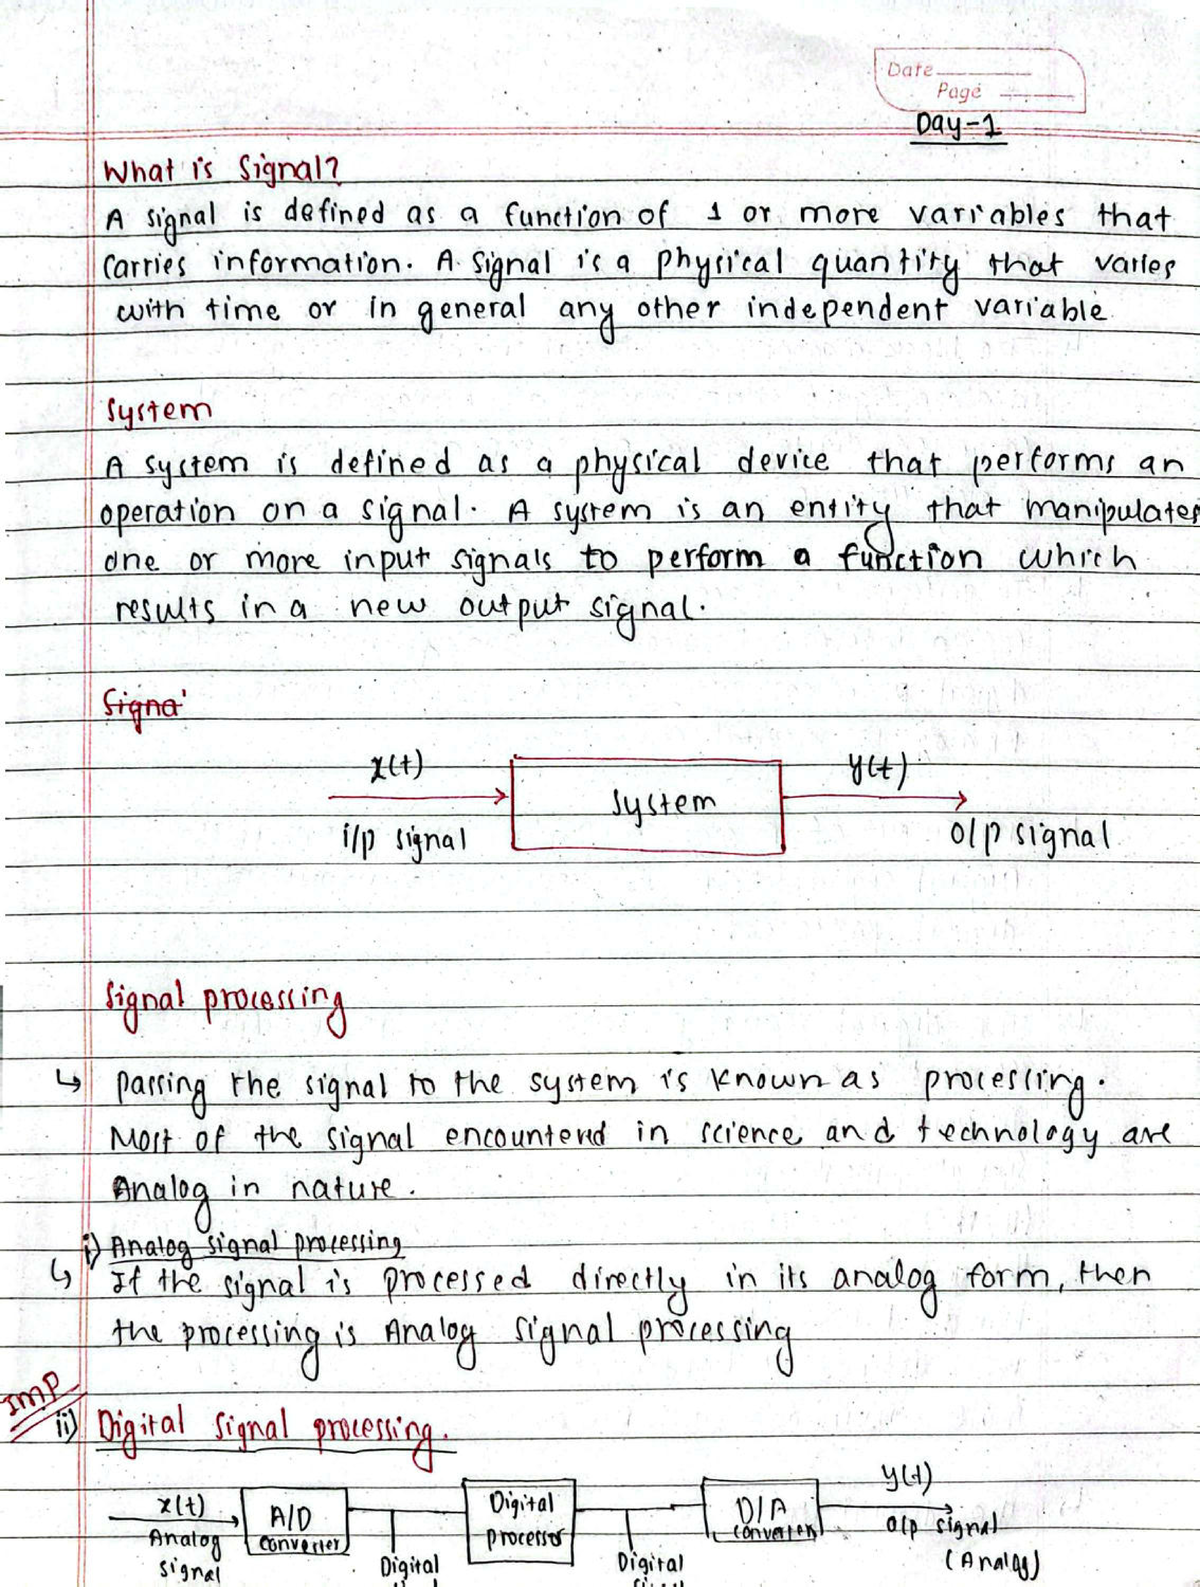 Date
Page
Day-1
What is Signal?
A signal is defined as a function of 1 or more variables that
carries information. A signal is a physical quantity that varies
with time or in general any other independent variable
System
A system is defined as a physical device that performs an
operation on a signal. A system is an entity that manipulates
one or more input signals to perform a function which
results in a new output signal.
Signal
x(t) y(t)
System
i/p signal o/p signal
Signal processing
↳ passing the signal to the system is known as processing.
Most of the signal encounterd in science and technology are
Analog in nature.
i) Analog signal processing
↳ If the signal is processed directly in its analog form, then
the processing is Analog signal processing
IMP
ii) Digital signal processing.
x(t) A/D Digital D/A y(t)
Analog converter processor converter o/p signal
signal Digital Digital (Analog)